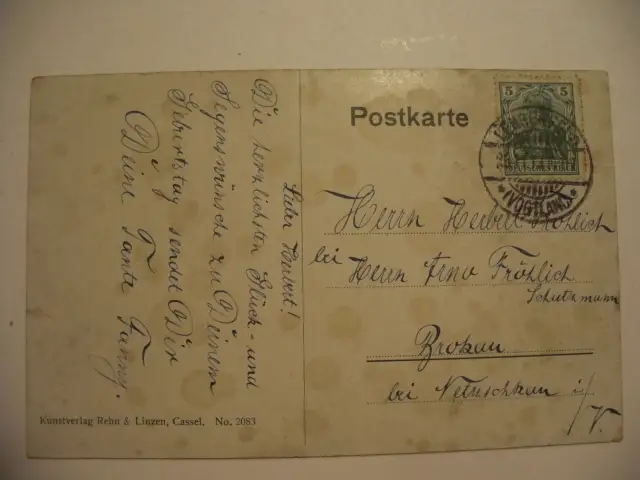 Lieber Herbert!
Die herzlichsten Glück- und
Segenswünsche zu Deinem
Geburtstag sendet Dir
Deine Tante Fanny.
Kunstverlag Rehn & Linzen, Cassel. No. 2083
Postkarte
5 5
DEUTSCHES REICH
(VOGTLAND)
Herrn Herbert Fröhlich
bei Herrn Arno Fröhlich
Schutzmann
Brokau
bei Netzschkau i/V.